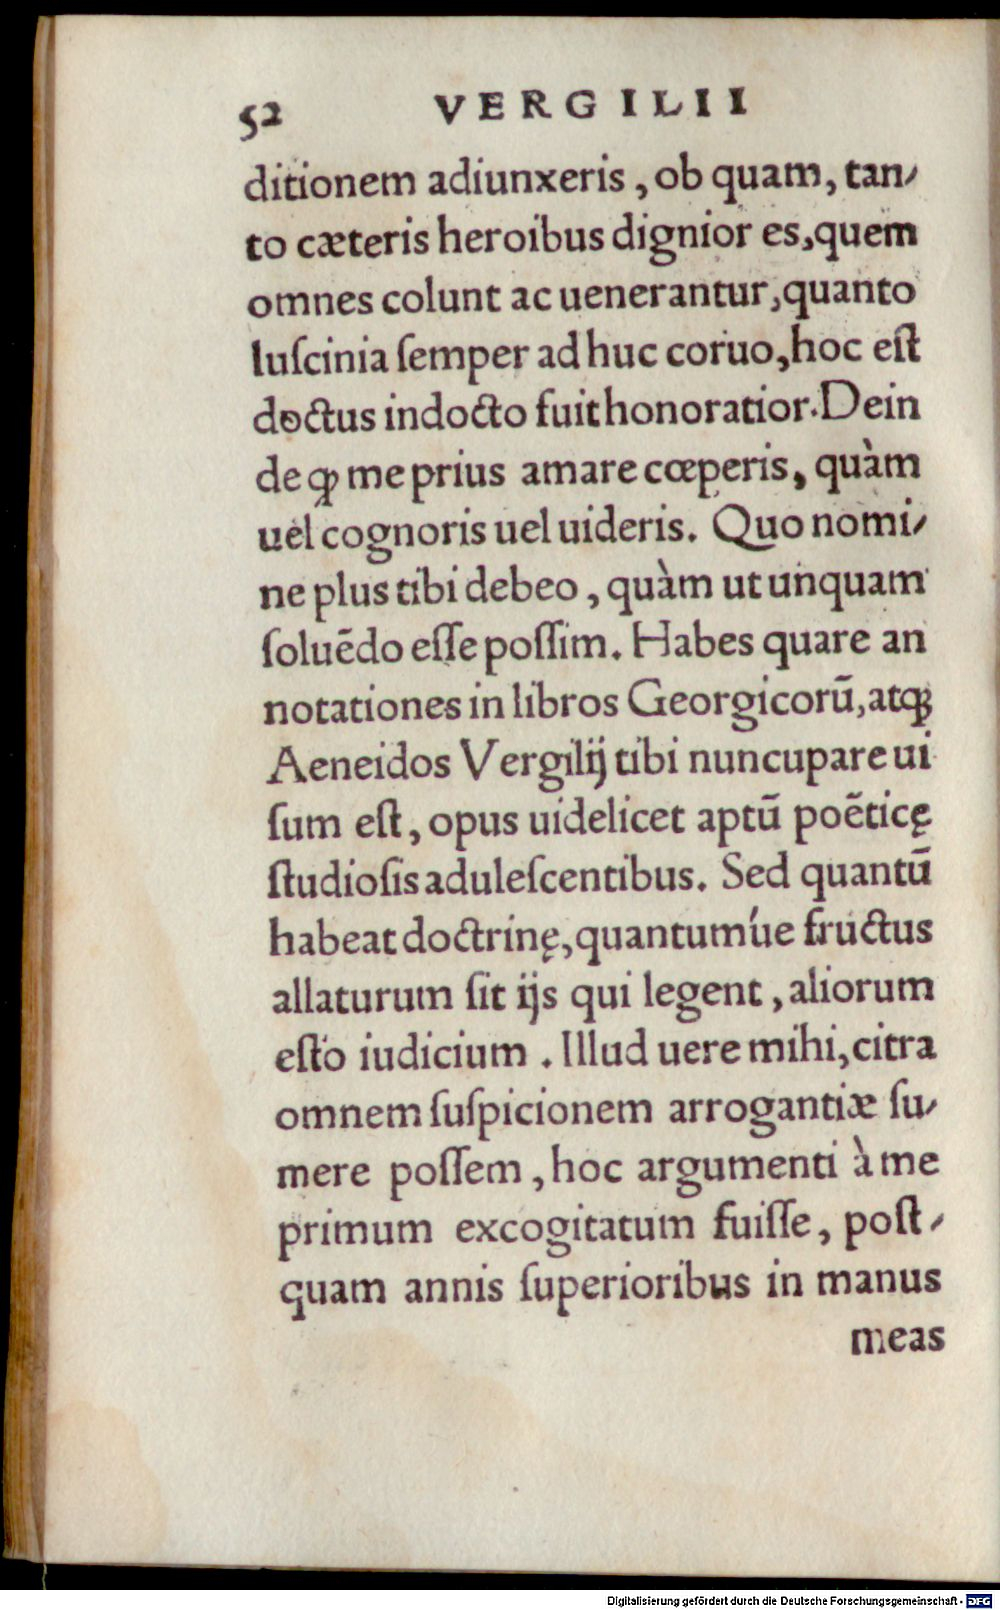 52 VERGILII
ditionem adiunxeris, ob quam, tan⸗
to cæteris heroibus dignior es, quem
omnes colunt ac uenerantur, quanto
luſcinia ſemper ad huc coruo, hoc eſt
doctus indocto fuit honoratior. Dein
de ꝙ me prius amare cœperis, quàm
uel cognoris uel uideris. Quo nomi⸗
ne plus tibi debeo, quàm ut unquam
ſoluēdo eſſe poſſim. Habes quare an
notationes in libros Georgicorū, atꝙ
Aeneidos Vergilij tibi nuncupare ui
ſum eſt, opus uidelicet aptū poēticę
ſtudioſis aduleſcentibus. Sed quantū
habeat doctrinę, quantumúe fructus
allaturum ſit ijs qui legent, aliorum
eſto iudicium. Illud uere mihi, citra
omnem ſuſpicionem arrogantiæ ſu⸗
mere poſſem, hoc argumenti à me
primum excogitatum fuiſſe, poſt⸗
quam annis ſuperioribus in manus
meas
Digitalisierung gefördert durch die Deutsche Forschungsgemeinschaft - DFG